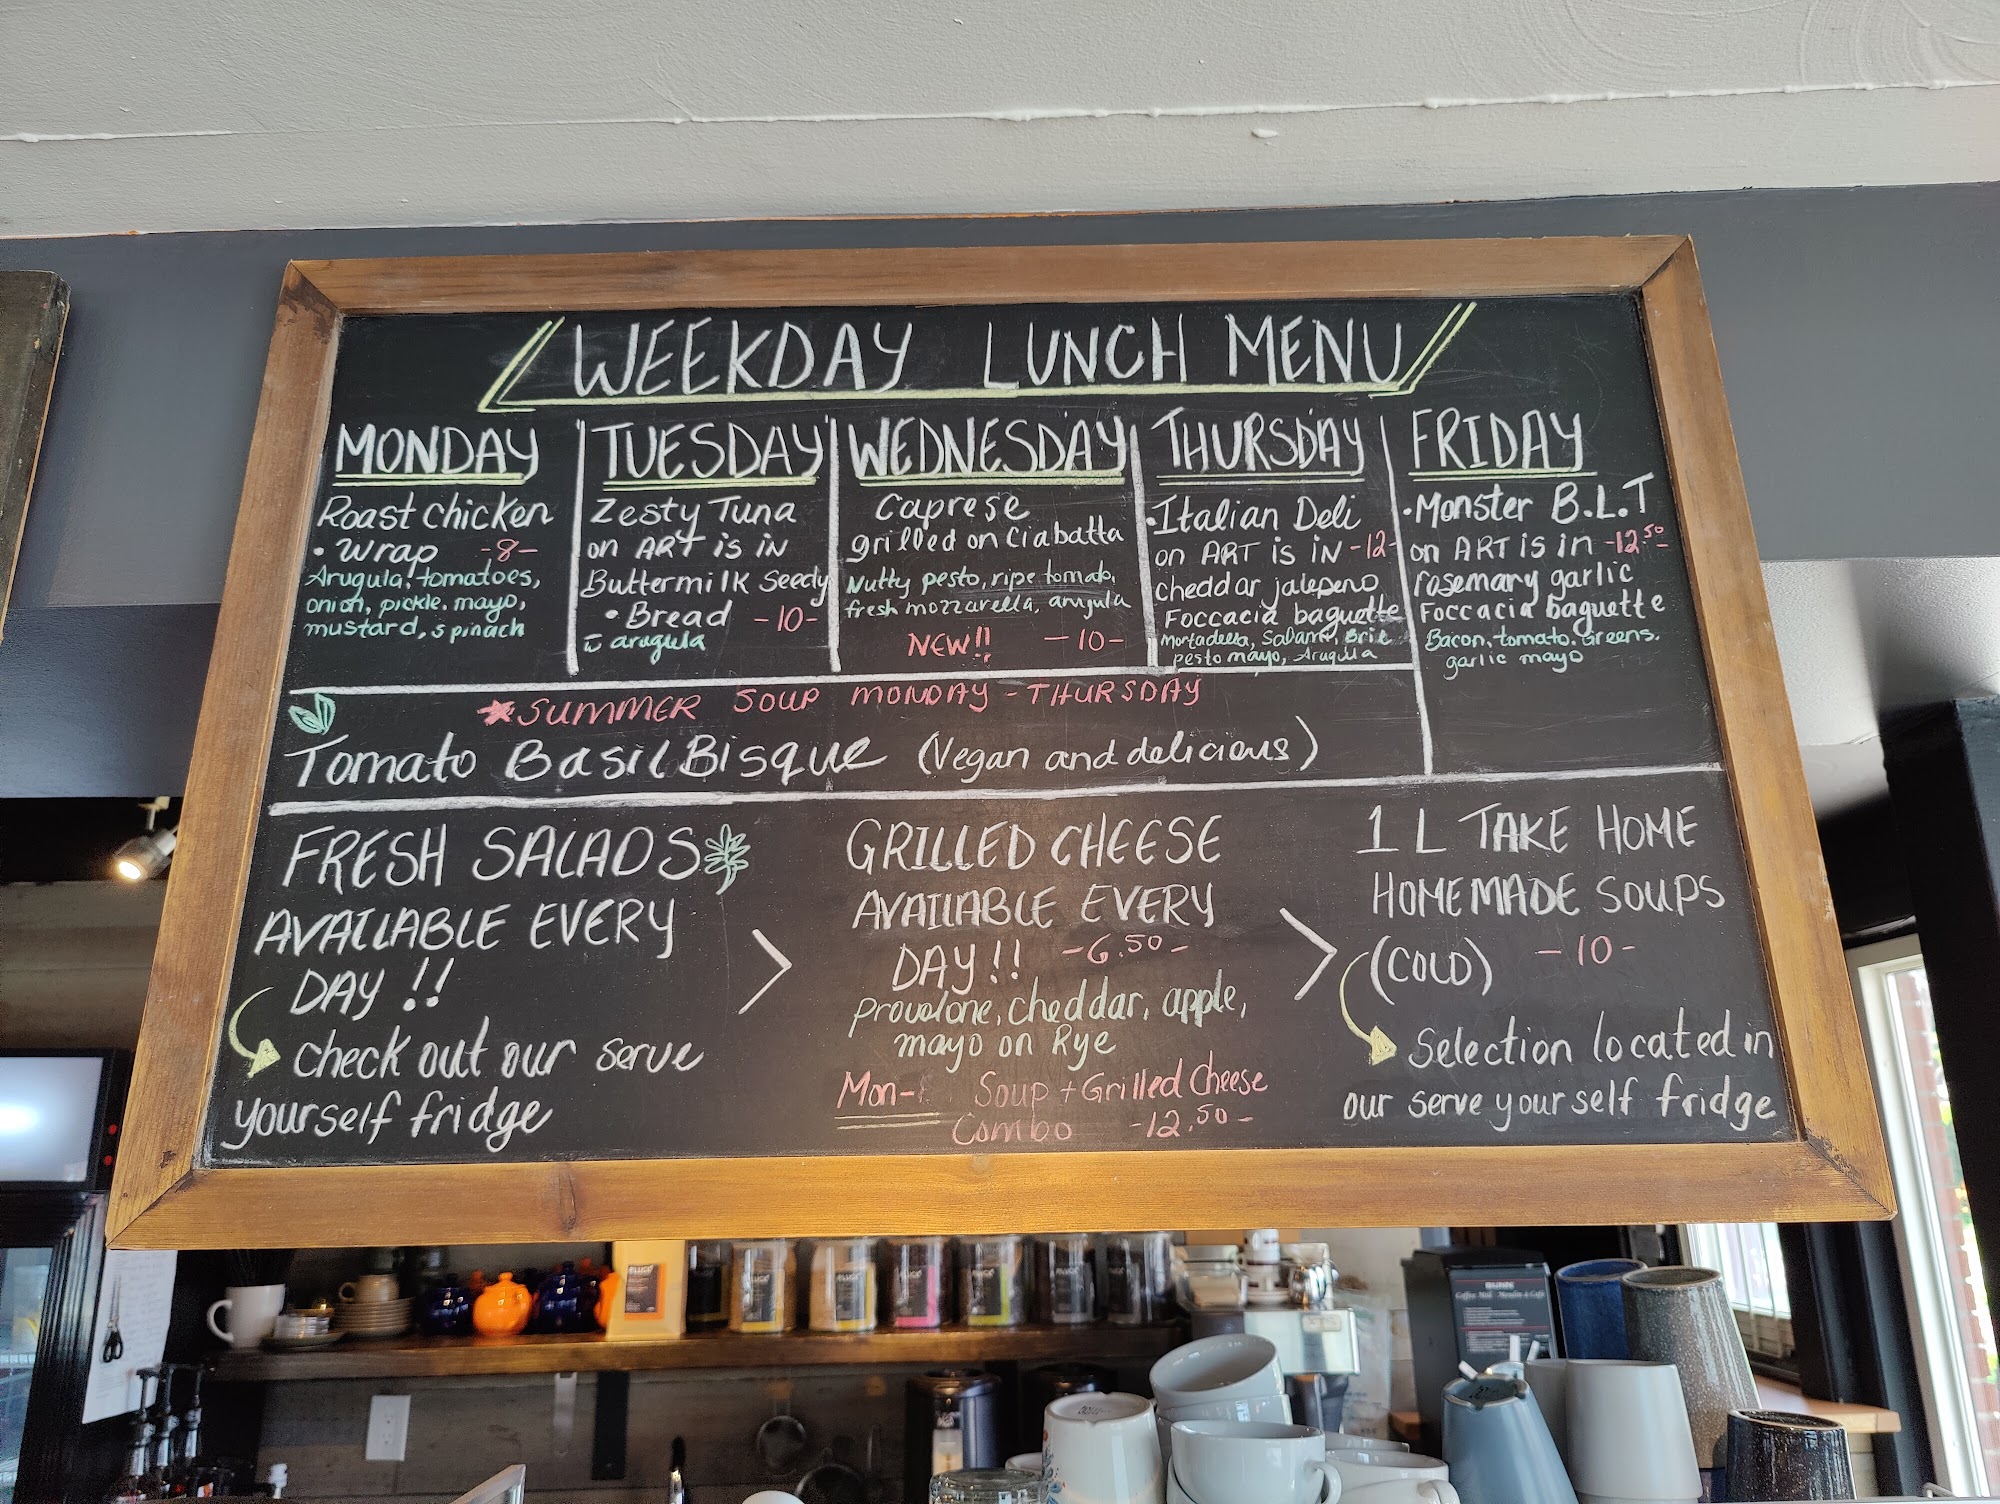 WEEKDAY LUNCH MENU
MONDAY
Roast chicken
• Wrap -8-
Arugula, tomatoes,
onion, pickle, mayo,
mustard, spinach
TUESDAY
Zesty Tuna
on ART is in
Buttermilk Seedy
• Bread -10-
c̄ arugula
WEDNESDAY
Caprese
grilled on Ciabatta
Nutty pesto, ripe tomato,
fresh mozzarella, arugula
NEW!! -10-
THURSDAY
• Italian Deli
on ART is iN -12-
cheddar jalepeno
Foccacia baguette
Mortadella, Salami, Brie
pesto mayo, Arugula
FRIDAY
• Monster B.L.T
on ART is in -12.50-
rosemary garlic
Foccacia baguette
Bacon, tomato, Greens,
garlic mayo
*SUMMER SOUP MONDAY - THURSDAY
Tomato Basil Bisque (Vegan and delicious)
FRESH SALADS
AVAILABLE EVERY
DAY !!
check out our serve
yourself fridge
GRILLED CHEESE
AVAILABLE EVERY
DAY!! -6.50-
Provolone, cheddar, apple,
mayo on Rye
Mon- Soup + Grilled Cheese
Combo -12.50-
1 L TAKE HOME
HOMEMADE SOUPS
(COLD) -10-
Selection located in
our serve yourself fridge
BUNN
Coffee Mill Moulin à Café